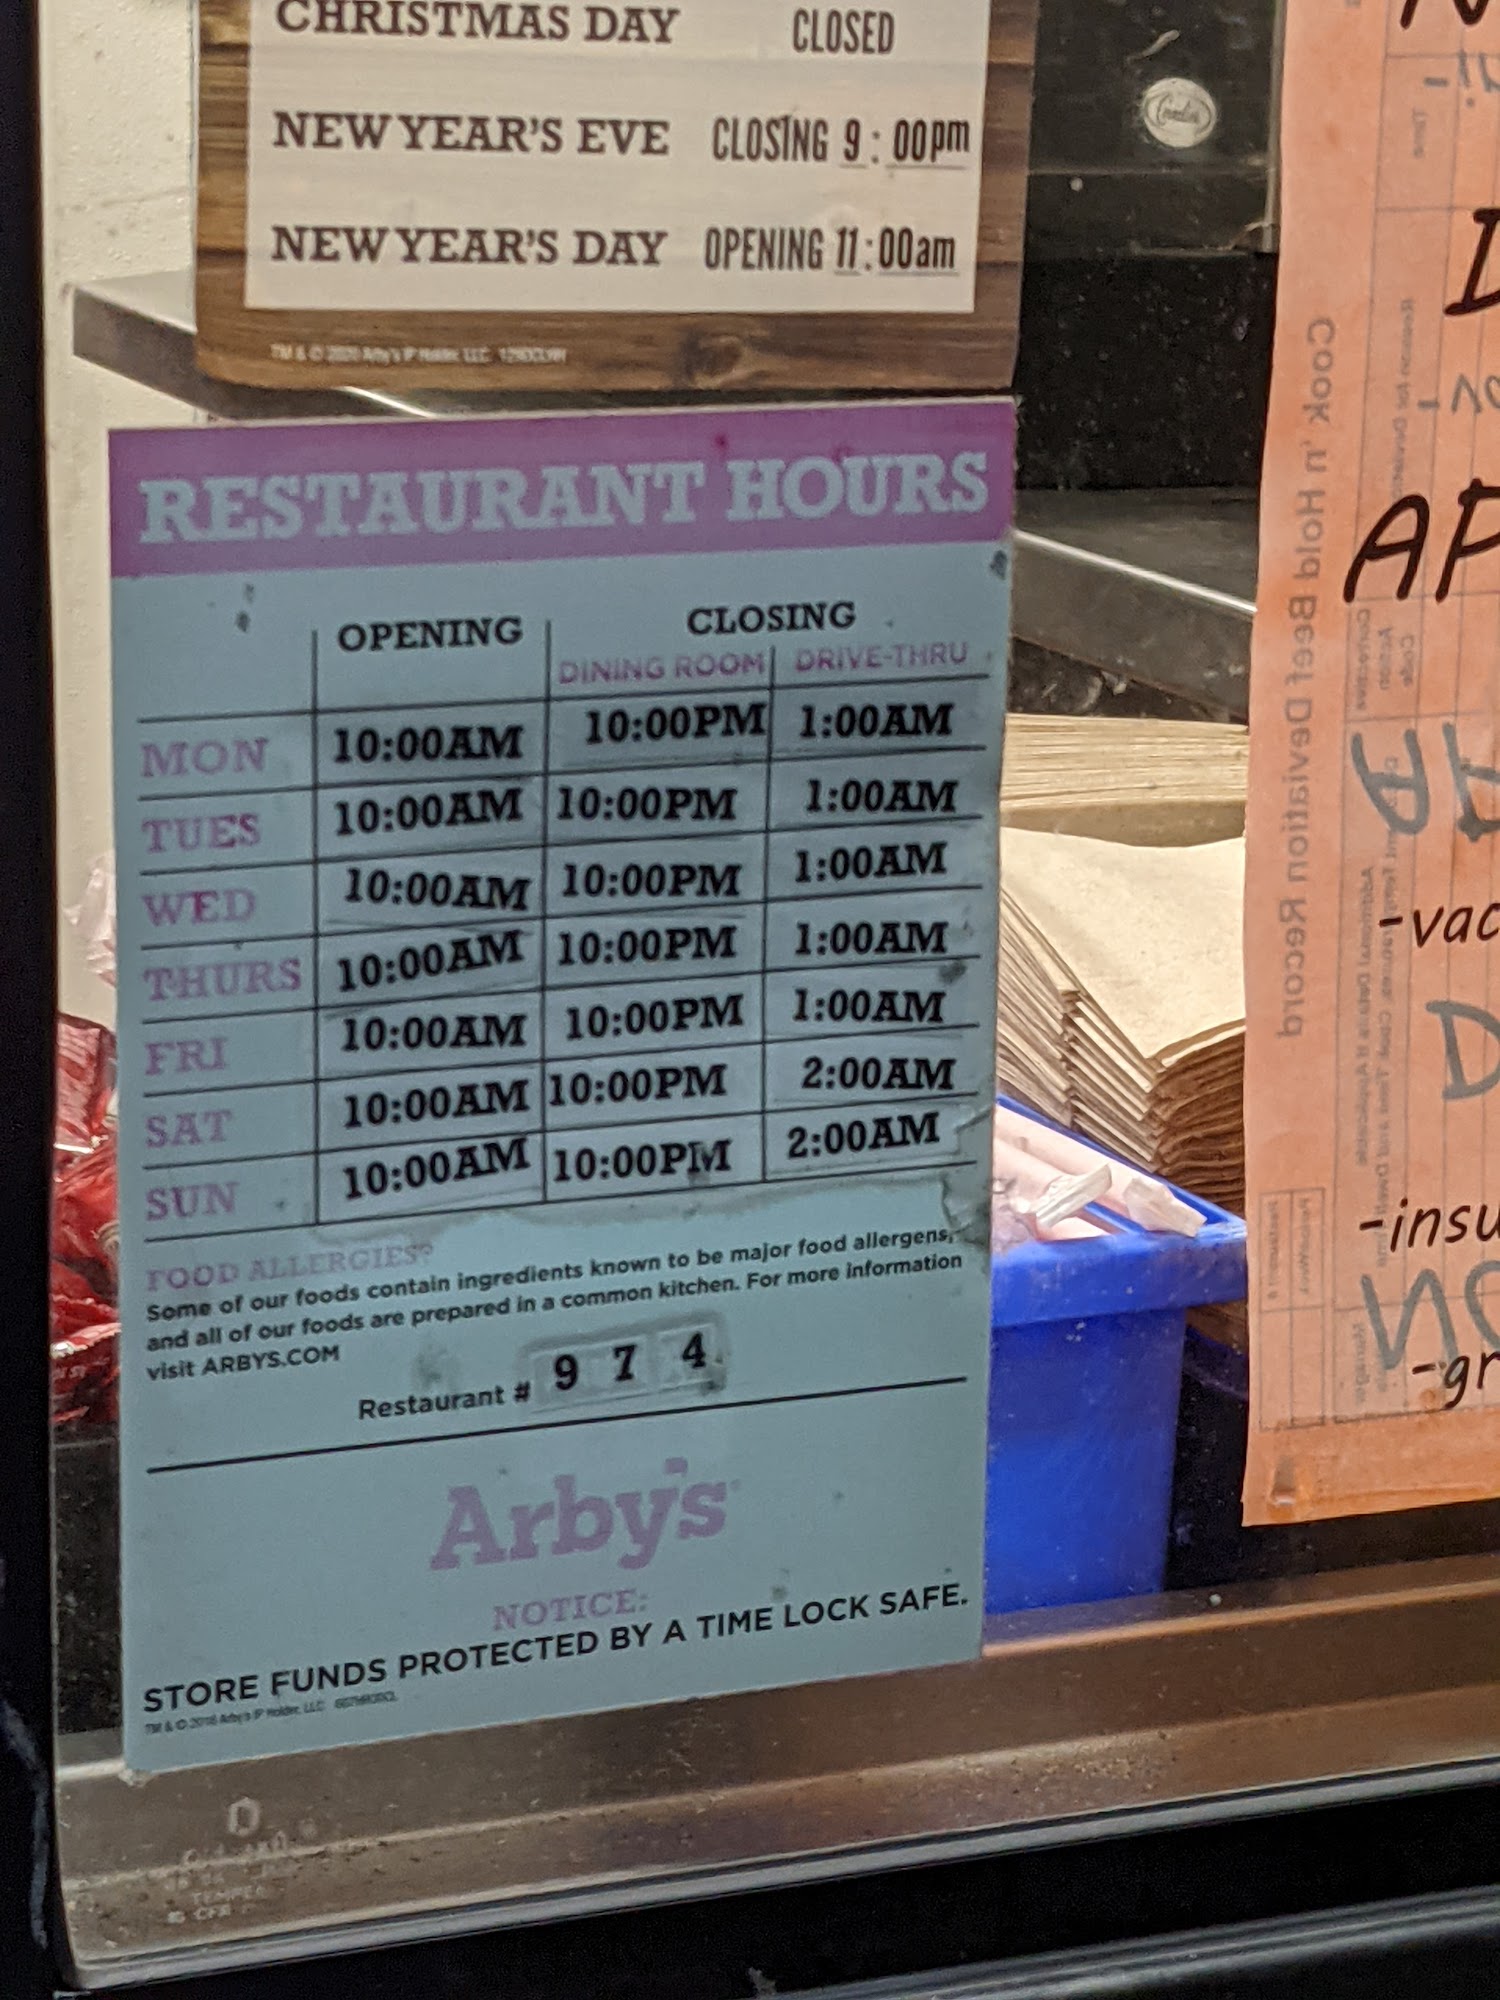 CHRISTMAS DAY CLOSED
NEW YEAR'S EVE CLOSING 9:00pm
NEW YEAR'S DAY OPENING 11:00am
TM & © 2020 Arby's IP Holder, LLC.
RESTAURANT HOURS
OPENING CLOSING
DINING ROOM DRIVE-THRU
MON 10:00AM 10:00PM 1:00AM
TUES 10:00AM 10:00PM 1:00AM
WED 10:00AM 10:00PM 1:00AM
THURS 10:00AM 10:00PM 1:00AM
FRI 10:00AM 10:00PM 1:00AM
SAT 10:00AM 10:00PM 2:00AM
SUN 10:00AM 10:00PM 2:00AM
FOOD ALLERGIES?
Some of our foods contain ingredients known to be major food allergens,
and all of our foods are prepared in a common kitchen. For more information
visit ARBYS.COM
Restaurant # 9 7 4
Arby's
NOTICE:
STORE FUNDS PROTECTED BY A TIME LOCK SAFE.
Arby's IP Holder, LLC
Cook 'n' Hold Beef Deviation Record
AP
-vac
-insu
-gr